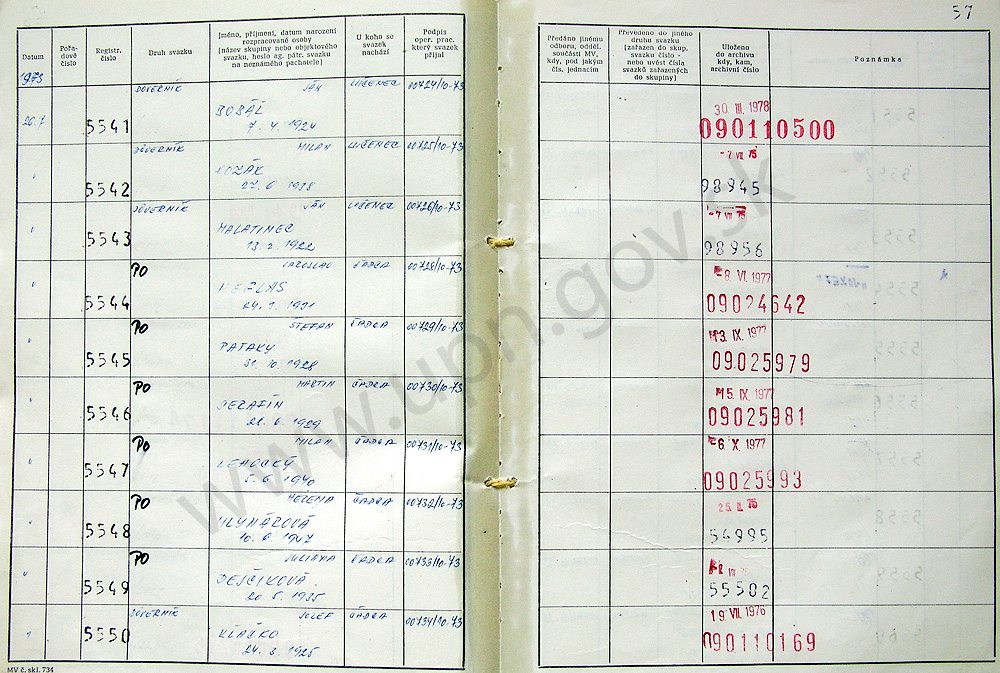 57
Datum
Pořa-
dové
číslo
Registr.
číslo
Druh svazku
Jméno, příjmení, datum narození
rozpracované osoby
(název skupiny nebo objektového
svazku, heslo ag. pátr. svazku
na neznámého pachatele)
U koho se
svazek
nachází
Podpis
oper. prac.
který svazek
přijal
Předáno jinému
odboru, odděl.
součásti MV,
kdy, pod jakým
čís. jednacím
Převedeno do jiného
druhu svazku
(zařazen do skup.
svazku číslo -
nebo uvést čísla
svazků zařazených
do skupiny)
Uloženo
do archivu
kdy, kam,
archivní číslo
Poznámka
1973
DÔVERNÍK JÁN LUČENEC 00724/10-73
5541
7. 4. 1924
30. III. 1978
090110500
DÔVERNÍK MILAN LUČENEC 00725/10-73
5542 KOZÁK
-7 VII 75
98945
DÔVERNÍK JÁN LUČENEC 00726/10-73
5543 MALATINEC
13. 2. 1922
-7 VII 75
98956
PO JAROSLAV ČADCA 00728/10-73
5544
-8. VI. 1977
09024642
PO ŠTEFAN ČADCA 00729/10-73
5545 PATAKY
31. 10. 1928
13. IX. 1977
09025979
PO MARTIN ČADCA 00730/10-73
5546 SERAFÍN
15. IX. 1977
09025981
PO MILAN ČADCA 00731/10-73
5547 LEHOCKÝ
5. 6. 1940
-6. X. 1977
09025993
PO HELENA ČADCA 00732/10-73
5548 MLYNÁROVÁ
10. 6. 1947
54995
PO JULIANA ČADCA 00733/10-73
5549
20. 5. 1935
55502
DÔVERNÍK JOZEF ČADCA 00734/10-73
5550
24. 3. 1925
19. VII. 1976
090110169
MV č. skl. 734
www.upn.gov.sk